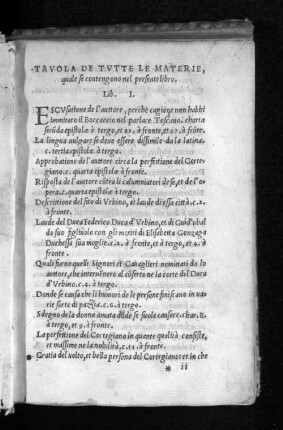 TAVOLA DE TVTTE LE MATERIE,
quale se contengono nel presente libro.
Lib. I.
ESCVsatione de l'auttore, perche cagione non habbi
immitato il Boccaccio nel parlare Toscano. charta
seconda epistola à tergo, et 22. à fronte, et 27. à fronte.
La lingua vulgare se deue essere dissimile da la latina.
c. tertia epistola à tergo.
Approbatione de l'auttore circa la perfettione del Corte-
giano. c. quarta epistola à fronte.
Risposta de l'auttore cõtra li calumniatori de se, et de l'o-
pera. c. quarta epistola à tergo.
Descrittione del sito di Vrbino, et laude di essa città c. 2.
à fronte.
Laude del Duca Federico Duca d'Vrbino, et de Guid'vbal
do suo figliuolo con gli meriti di Elisabetta Gonzaga
Duchessa sua moglie. c. 2. à fronte, et à tergo, et 4. à
fronte.
Quali furno quelli Signori et Cauaglieri nominati da lo
auttore, che interuënero al cõserto ne la corte del Duca
d'Vrbino. c. 4. à tergo.
Donde se causa che li humori de le persone finiscano in va-
rie sorte di pazzia. c. 6. à tergo.
Sdegno de la donna amata dõde se suole causare. char. 8.
à tergo, et 9. à fronte.
La perfettione del Cortegiano in quante qualità consiste,
et massime ne la nobilità, c. 12. à fronte.
Gratia del volto, et bella persona del Cortegiano: et in che
* ii